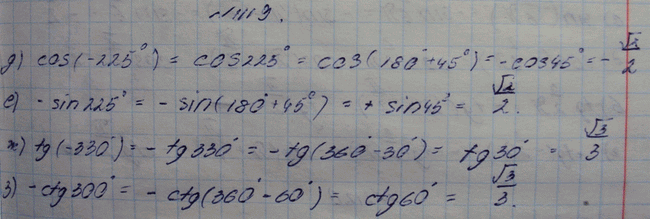 № 1119.
д) cos(-225°) = cos225° = cos(180°+45°) = -cos45° = -√2/2
е) -sin225° = -sin(180°+45°) = + sin45° = √2/2.
ж) tg(-330°) = -tg330° = -tg(360°-30°) = tg30° = √3/3
з) -ctg300° = -ctg(360°-60°) = ctg60° = √3/3.